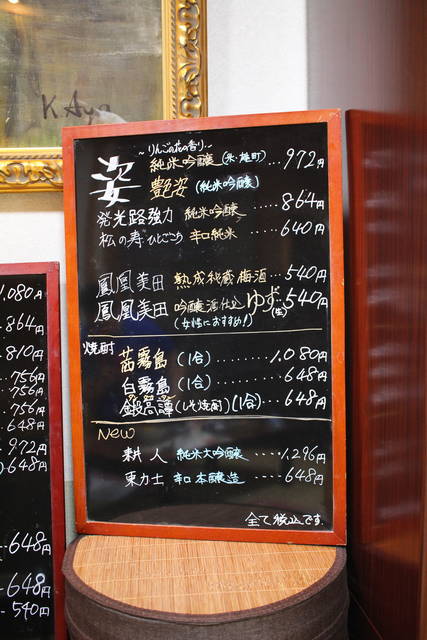 K Aya
～りんごの花の香り～
姿 純米吟醸(米・雄町)...972円
艶姿(純米吟醸)
発光路強力 純米吟醸.....864円
松の寿ひとごこち 辛口純米.....640円
鳳凰美田 熟成秘蔵梅酒...540円
鳳凰美田 吟醸酒仕込ゆず(酒)540円
(女性におすすめ!)
焼酎
茜霧島(1合)........1,080円
白霧島(1合)........648円
鍛高譚(しそ焼酎)(1合)....648円
New
耕人 純米大吟醸.....1,296円
東力士 辛口本醸造.....648円
全て税込です
1,080円
864円
810円
756円
756円
756円
648円
972円
648円
648円
648円
540円